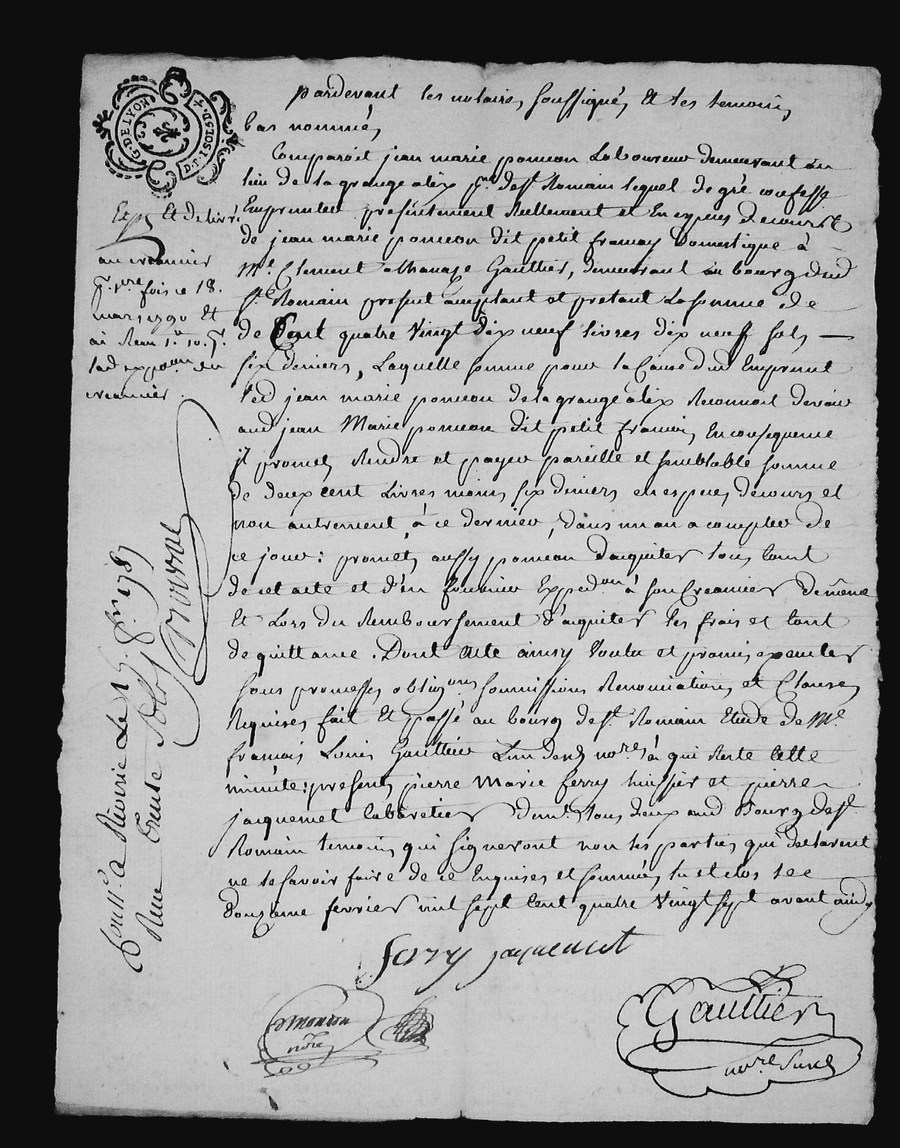 G. DE LYON
D.P. 1 SOL 4 D.
pardevant les notaires soussignés et les temoins
bas nommés
Comparoit jean marie poncon Laboureur demeurant au
lieu de la grange alix psse de st Romain lequel de gré confesse
Emprunter presentement Reellement et En especes de cours
de jean marie poncon dit petit francoy Domestique à
Me Clement athanaze Gaultier, demeurant au bourg dud
st Romain present acceptant et pretant La somme de
de Cent quatre Vingt dix neuf livres dix neuf sols
six deniers, Laquelle somme pour la Cause dud Emprunt
led jean marie poncon de la grange alix Reconnoit devoir
aud jean Marie poncon dit petit francois, En consequence
jl promet Rendre et payer pareille et semblable somme
de deux cent Livres moins six deniers en especes de cours et
non autrement, à ce dernier, dans un an a compter de
ce jour : promet aussy poncon d'aquiter tous Cout
de cet acte et d'en fournir Expedon à son Creancier de même
Et Lors du Remboursement d'aquiter les frais et Cout
de quittance. Dont acte ainsy Voulu et promis executer
sous promesses obligons soumissions Renonciations et Clauses
Requises fait Et passé au bourg de st Romain Etude de Me
francois Louis Gaultier L'un desd nores à qui Reste Cette
minute : present pierre Marie ferry huissier et pierre
jacquemet Cabaretier demt tous deux aud Bourg de st
Romain temoins qui signeront non les parties qui declarent
ne le savoir faire de ce Enquises et sommées lu et clos le
douzieme fevrier mil sept Cent quatre Vingt sept avant midy
ferry jacquemet
nore
Gaultier
nore
Exp. Et delivré
au creancier
pr 1re fois ce 18.
mars 1790 et
lad expon au
creancier.
Contlé. a Riverie Le 15. fer 1787
Reçu trente sols